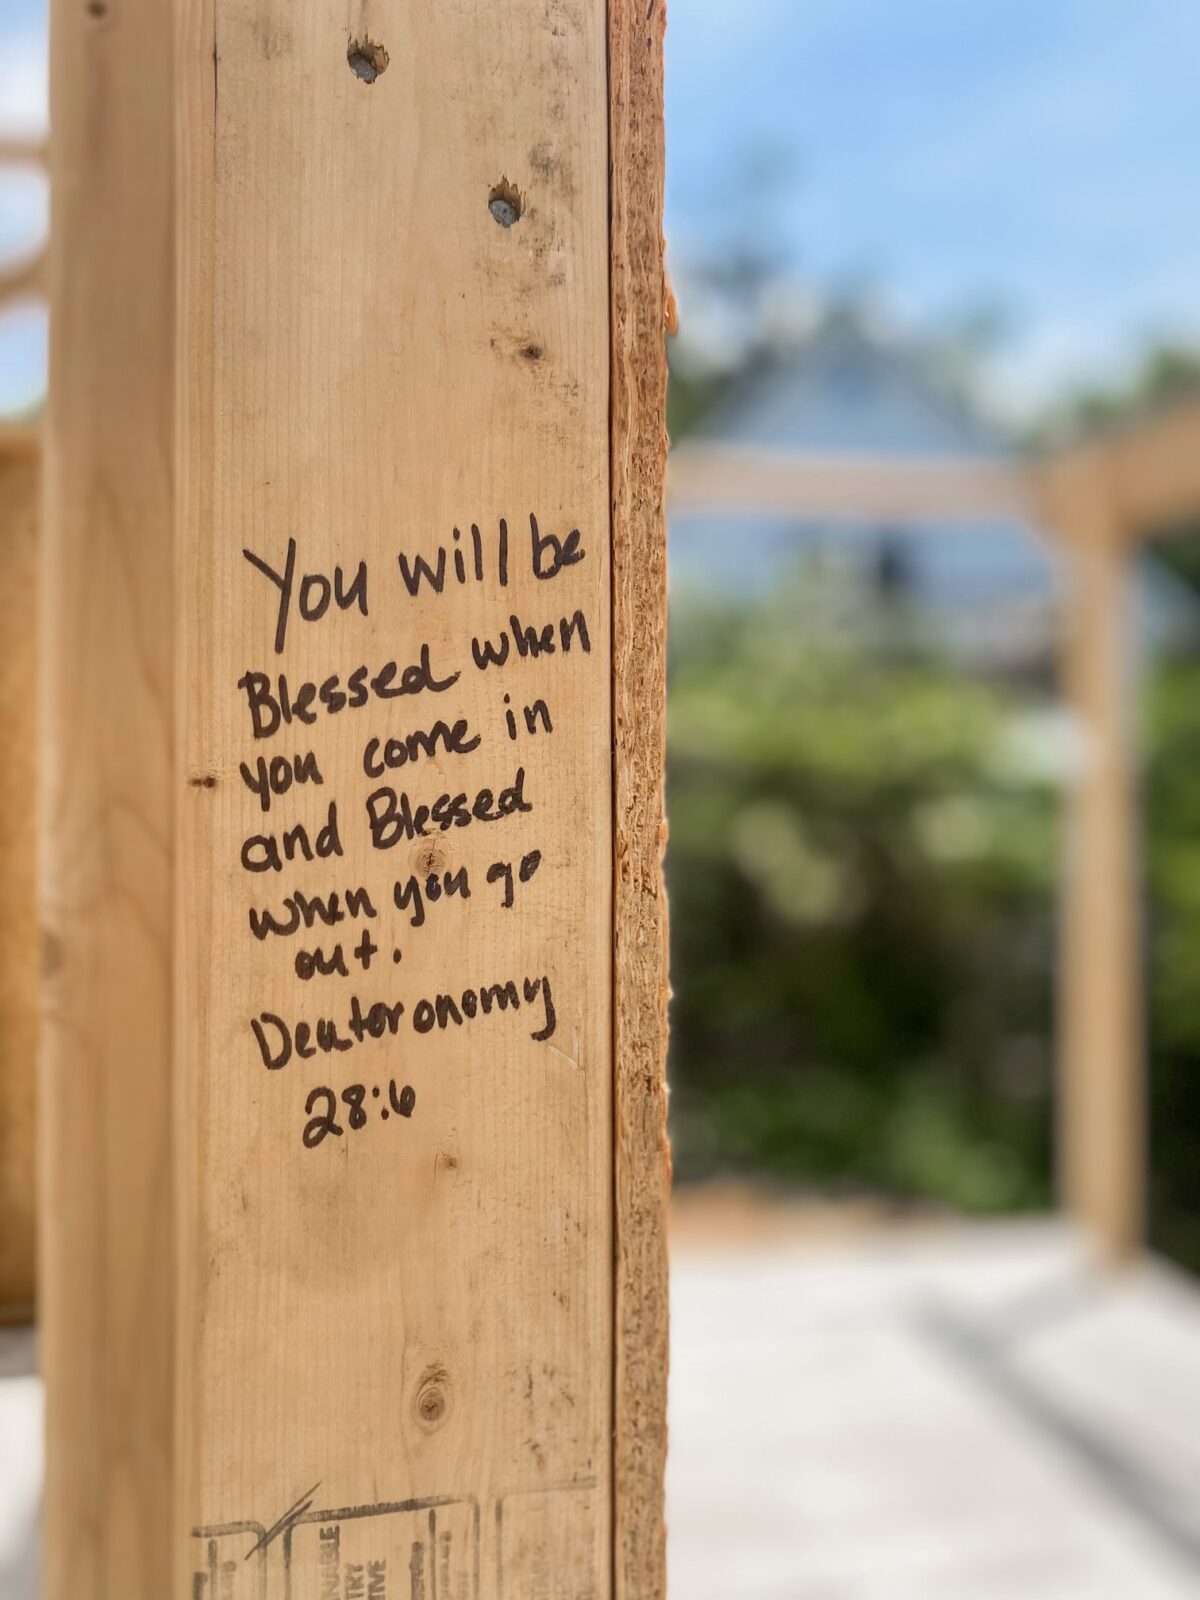 You will be
Blessed when
you come in
and Blessed
when you go
out.
Deuteronomy
28:6